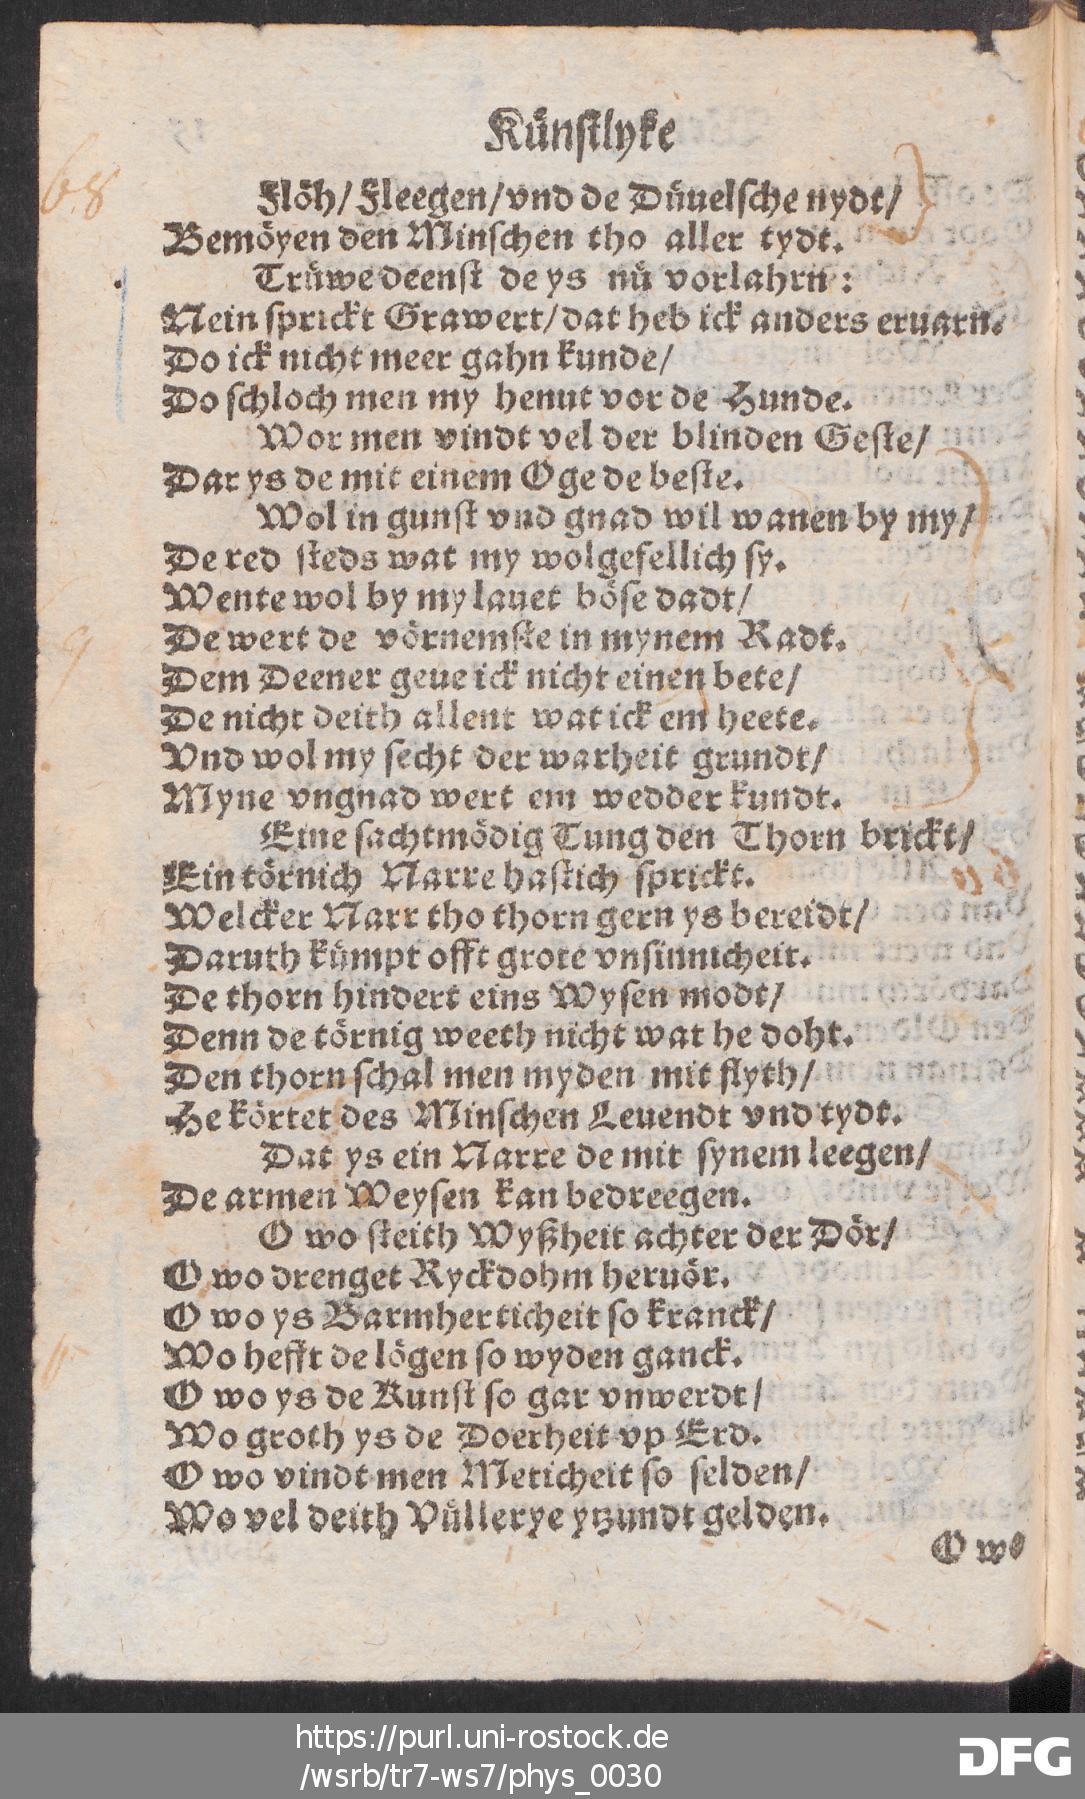 Künstlyke
Flöh/ Fleegen/ vnd de Düuelsche nydt/
Bemöyen den Minschen tho aller tydt.
Trüwe deenst de ys nü vorlahrn:
Nein sprickt Grawert/ dat heb ick anders eruarn.
Do ick nicht meer gahn kunde/
Do schloch men my hennt vor de Hunde.
Wor men vindt vel der blinden Geste/
Dar ys de mit einem Oge de beste.
Wol in gunst vnd gnad wil wanen by my/
De red steds wat my wolgefellich sy.
Wente wol by my lauet böse dadt/
De wert de vörnemste in mynem Radt.
Dem Deener geue ick nicht einen bete/
De nicht deith allent wat ick em heete.
Vnd wol my secht der warheit grundt/
Myne vngnad wert em wedder kundt.
Eine sachtmödig Tung den Thorn brickt/
Ein törnich Narre hastich sprickt.
Welcker Narr tho thorn gern ys bereidt/
Daruth kümpt offt grote vnsinnicheit.
De thorn hindert eins Wysen modt/
Denn de törnig weeth nicht wat he doht.
Den thorn schal men myden mit flyth/
He körtet des Minschen Leuendt vnd tydt.
Dat ys ein Narre de mit synem leegen/
De armen Weysen kan bedreegen.
O wo steith Wyßheit achter der Dör/
O wo drenget Ryckdohm heruör.
O wo ys Barmherticheit so kranck/
Wo hefft de lögen so wyden ganck.
O wo ys de Kunst so gar vnwerdt/
Wo groth ys de Doerheit vp Erd.
O wo vindt men Meticheit so selden/
Wo vel deith Vüllerye ytzundt gelden.
O wo
https://purl.uni-rostock.de
/wsrb/tr7-ws7/phys_0030
DFG